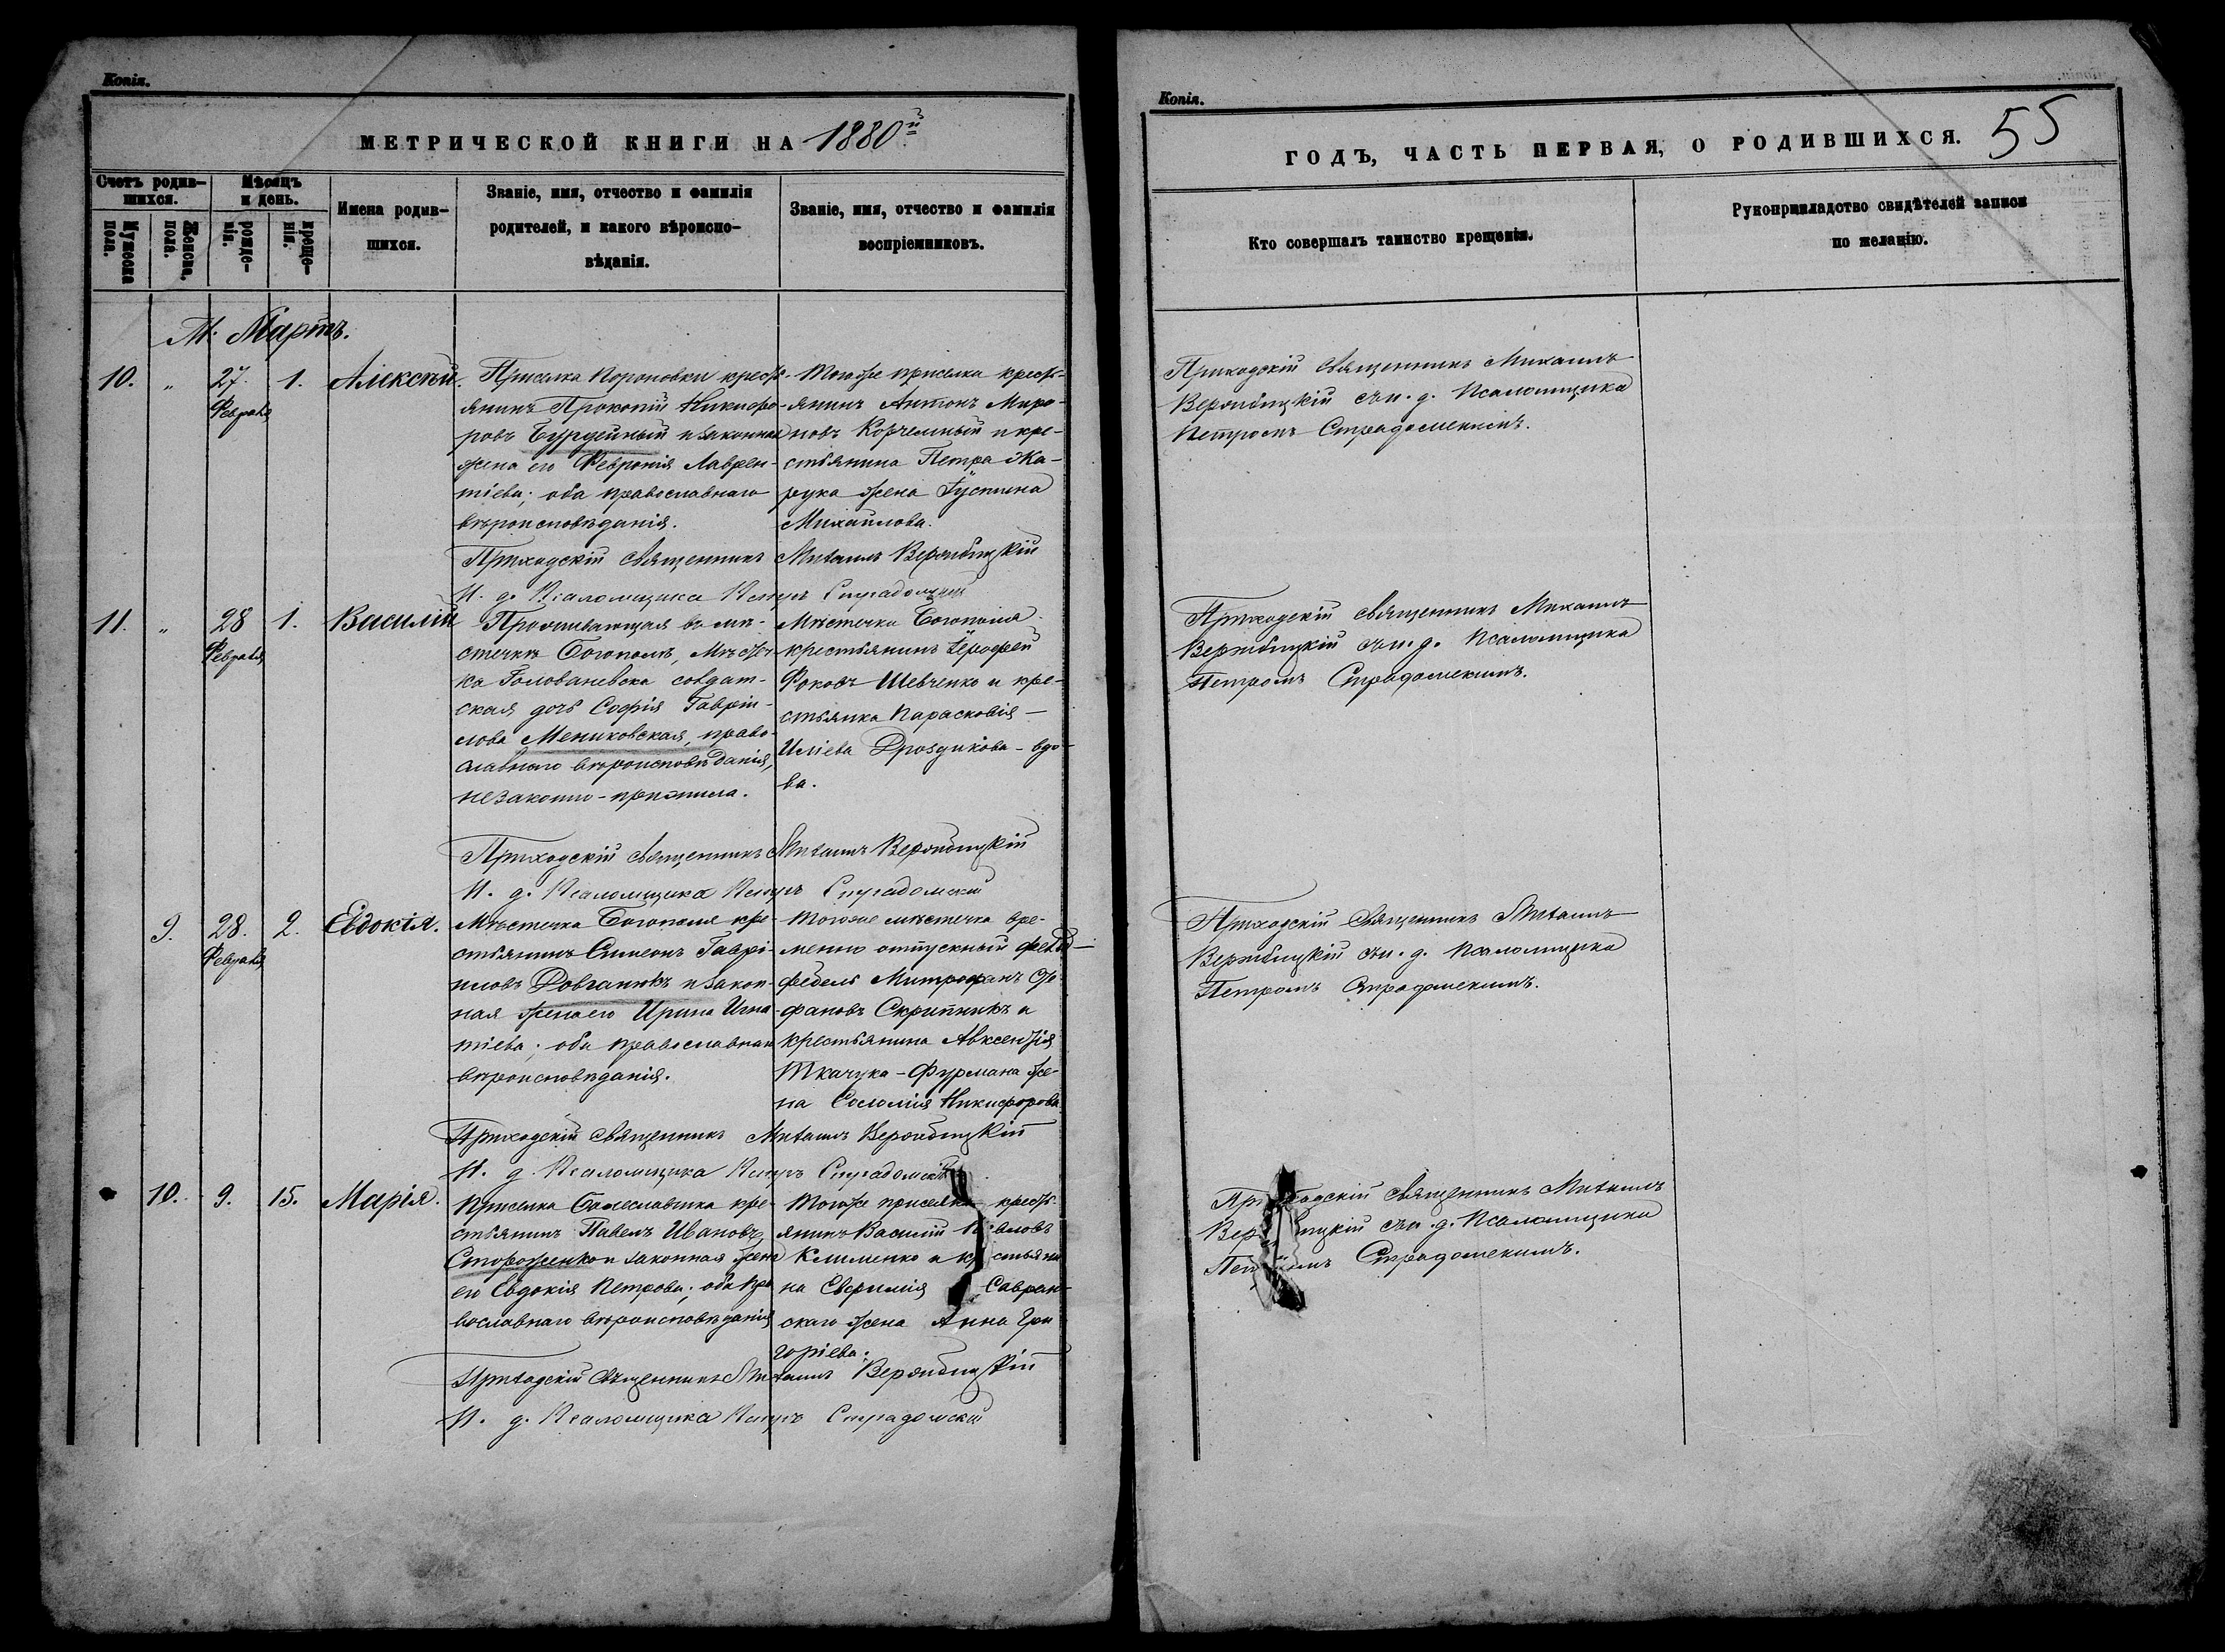 Копія.
МЕТРИЧЕСКОЙ КНИГИ НА 1880й
Счетъ родив-
шихся.
Мужеска
пола.
Женска.
пола.
Мѣсяцъ
и день.
рожде-
нія.
креще-
нія.
Имена родив-
шихся.
Званіе, имя, отчество и фамилія
родителей, и какого вѣроиспо-
вѣданія.
Званіе, имя, отчество и фамилія
воспріемниковъ.
М. Мартъ.
10. „ 27. Февраля 1. Алексѣй.
Приселка крестъ-
янинъ Прокопій Никифо-
ровъ Бурдейный и законная
жена его Февронія Лаврен-
тіева; оба православнаго
вѣроисповѣданія.
Тогоже приселка крестъ-
янинъ Антонъ Миро-
новъ Корчемный и кре-
стьянина Петра
жена Іустина
Михайлова.
Приходскій священникъ Михаилъ Вержбицкій
И. д. Псаломщика Петръ Страдомскій
11. „ 28 Февраля 1. Василій
Проживающая въ мѣ-
стечкѣ Богополѣ, Мѣстеч-
ка Голованевска солдат-
ская дочь Софія Гавріи-
лова Мениковская, право-
славнаго вѣроисповѣданія,
незаконно-прижила.
Мѣстечка Богополя
крестьянинъ Іерофей
Фоковъ Шевченко и кре-
стьянка Парасковія
Иліева Дроздикова - вдо-
ва.
Приходскій священникъ Михаилъ Вержбицкій
И. д. Псаломщика Петръ Страдомскій
9. 28. Февраля 2. Евдокія.
Мѣстечка Богополя кре-
стьянинъ Симеонъ Гаврі-
иловъ Довганюкъ и закон-
ная жена его Ирина Игна-
тіева; оба православнаго
вѣроисповѣданія.
Тогоже мѣстечка вре-
менно отпускный фельд-
фебель Митрофанъ
фановъ Скрипникъ и
крестьянина Авксентія
Ткачука-Фурмана же-
на Соломія Никифорова
Приходскій священникъ Михаилъ Вержбицкій
И. д. Псаломщика Петръ Страдомскій
10. 9. 15. Марія.
Приселка Болеславчика кре-
стьянинъ Павелъ Ивановъ
Стороженко и законная жена
его Евдокія Петрова; оба пра
вославнаго вѣроисповѣданія
Тогоже приселка крестъ-
янинъ Василій
Клименко и
на Евфимія Савран-
скаго жена Анна Гри
горіева.
Приходскій священникъ Михаилъ Вержбицкій
И. д. Псаломщика Петръ Страдомскій
Копія.
ГОДЪ, ЧАСТЬ ПЕРВАЯ, О РОДИВШИХСЯ. 55
Кто совершалъ таинство крещенія.
Рукоприкладство свидѣтелей записи
по желанію.
Приходскій священникъ Михаилъ
Вержбицкій съ и. д. Псаломщика
Петромъ Страдомскимъ.
Приходскій священникъ Михаилъ
Вержбицкій съ и. д. Псаломщика
Петромъ Страдомскимъ.
Приходскій священникъ Михаилъ
Вержбицкій съ и. д. Псаломщика
Петромъ Страдомскимъ.
Приходскій священникъ Михаилъ
Вержбицкій съ и. д. Псаломщика
Петромъ Страдомскимъ.